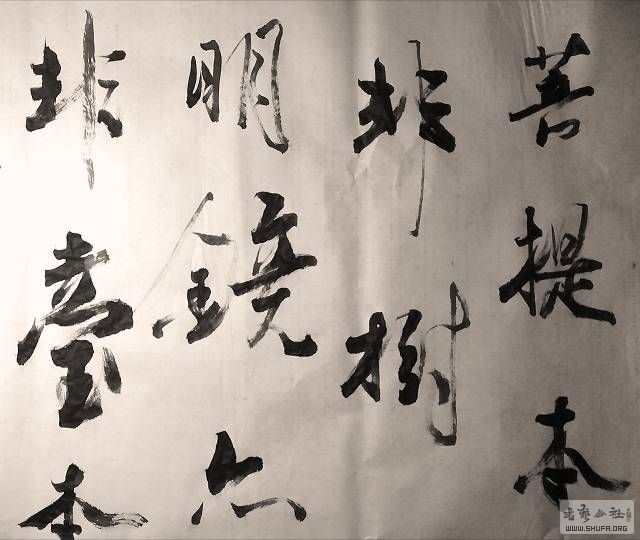 菩提本
非樹
明鏡亦
非臺本
WWW.SHUFA.ORG